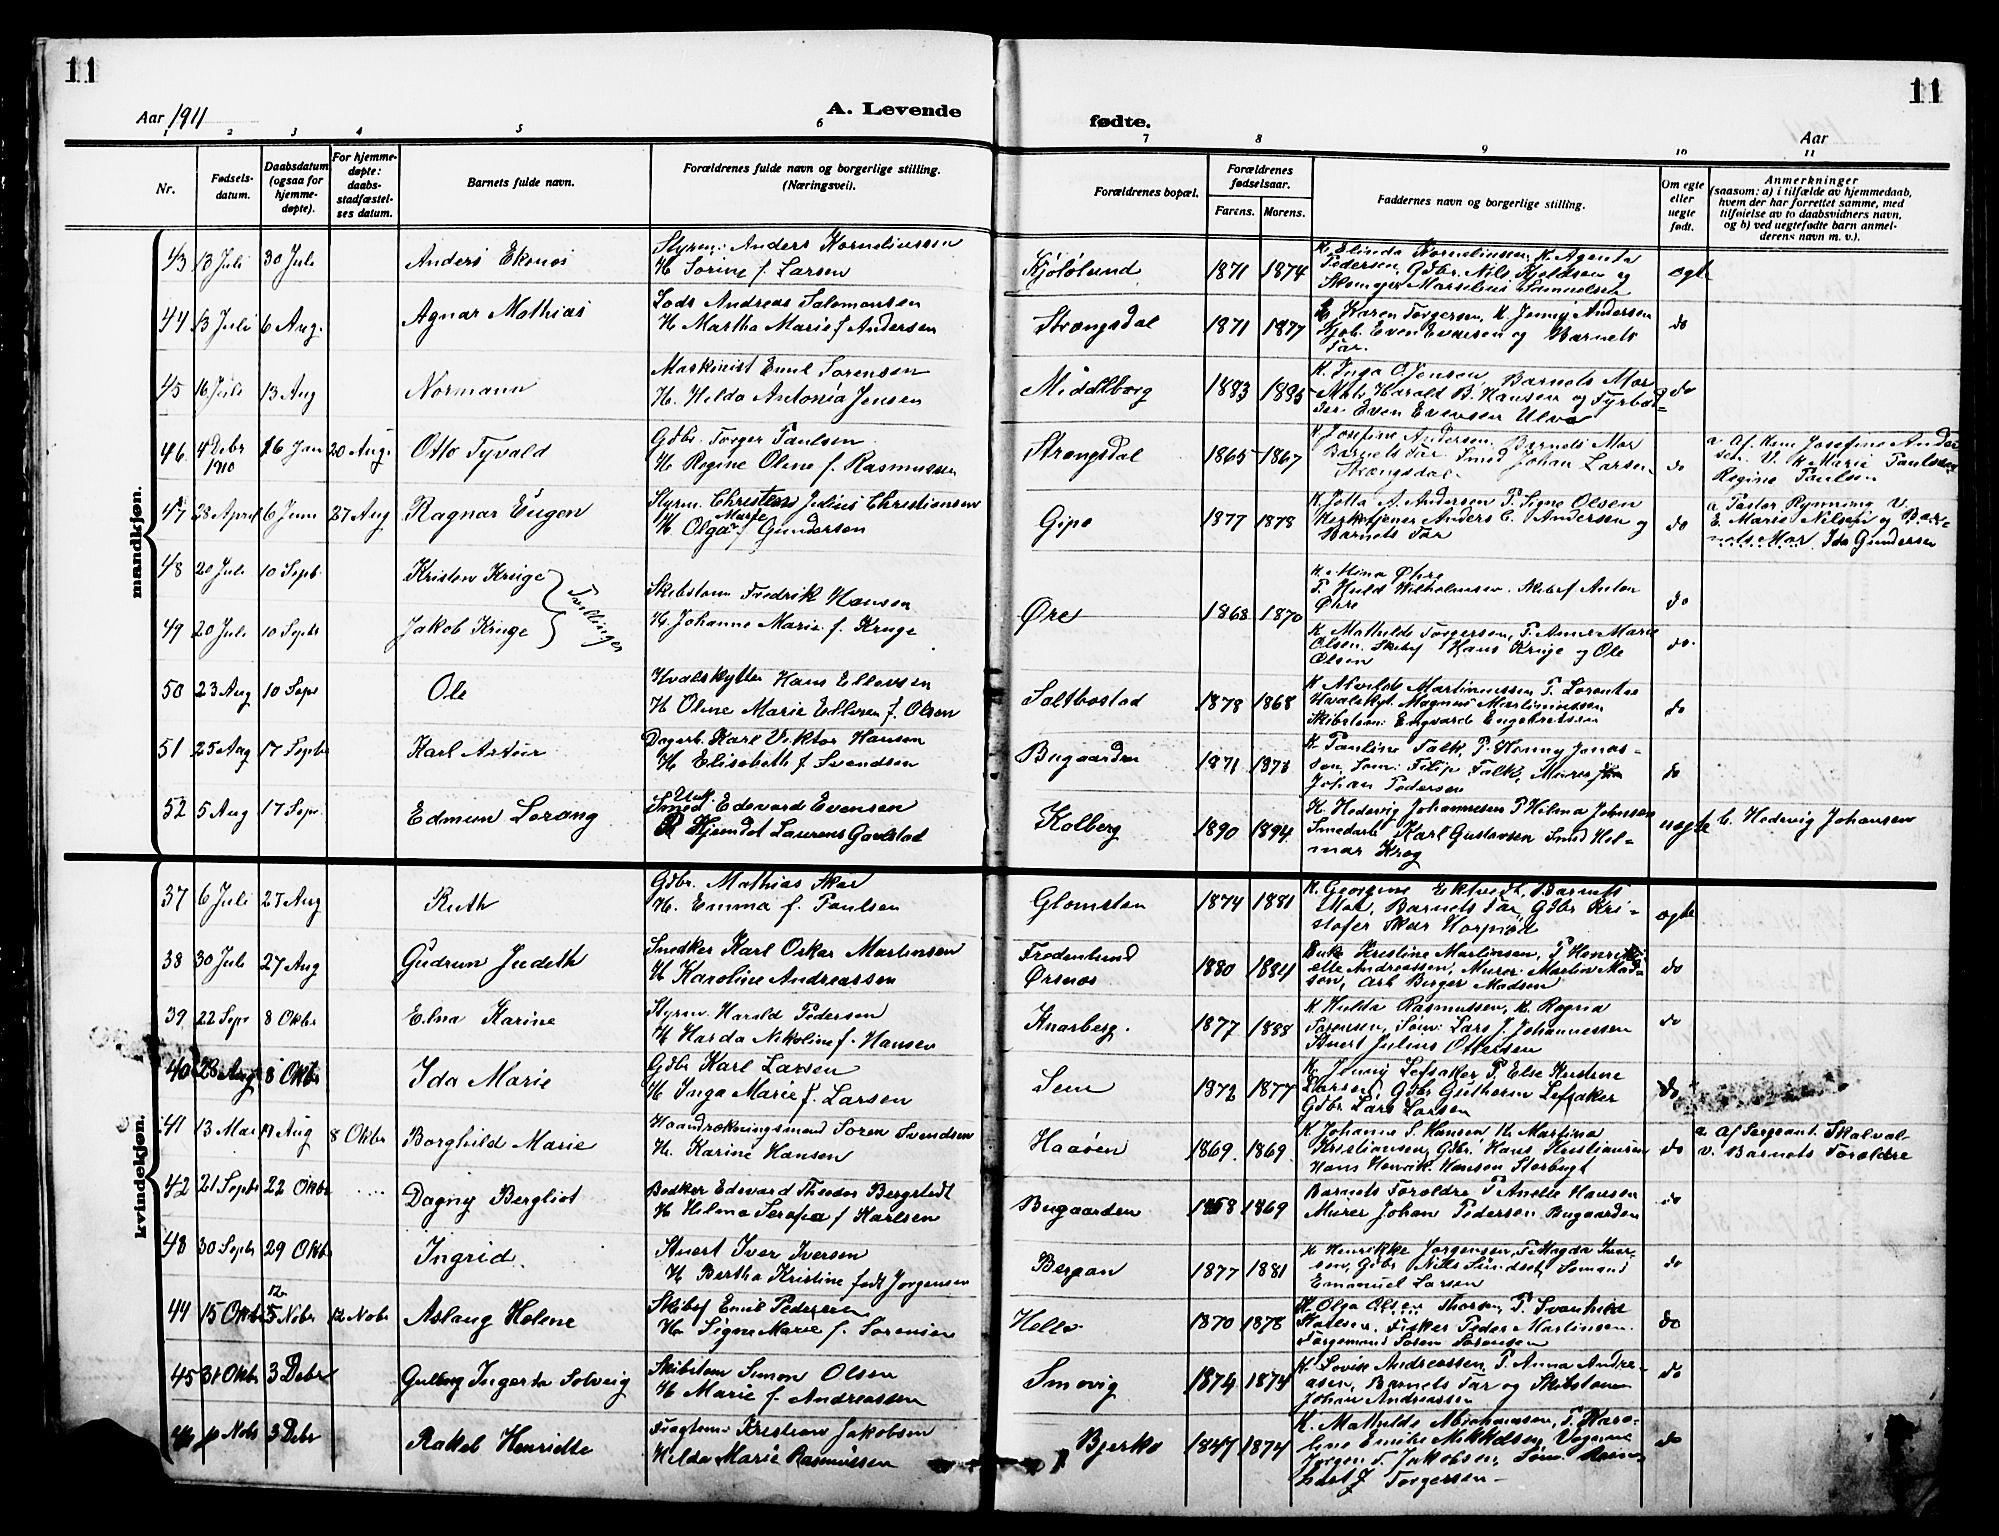 11
11
Aar 1911
A. Levende
fødte.
Aar
1 2 3 4 5 6 7 8 9 10 11
Nr.
Fødsels-
datum.
Daabsdatum
(ogsaa for
hjemme-
døpte).
For hjemme-
døpte:
daabs-
stadfæstel-
ses datum.
Barnets fulde navn.
Forældrenes fulde navn og borgerlige stilling.
(Næringsvei).
Forældrenes bopæl.
Forældrenes
fødselsaar.
Farens. Morens.
Faddernes navn og borgerlige stilling.
Om egte
eller
uegte
født.
Anmerkninger
(saasom: a) i tilfælde av hjemmedaab,
hvem der har forrettet samme, med
tilføielse av to daabsvidners navn,
og b) ved uegtefødte barn anmel-
derens navn m. v.).
mandkjøn.
43 13 Juli 30 Juli Anders Ekenes
Styrm: Anders Korneliussen
H Sorine f. Larsen
Kjølølund 1871 1874
K. Elinda Korneliussen, K. Agenda
Pedersen, Gdbr. Nils Kjeldsen og
Skomager Marselius Samuelsen
egte
44 13 Juli 6 Aug. Agnar Mathias
Lods Andreas Salomonsen
H. Martha Marie f Andersen
Strengsdal 1871 1877
K Karen Torgersen, K. Jenny Andersen
Gjob. Even Evensen og Barnets
Far.
do
45 16 Juli 13 Aug Normann
Maskinist Emil Sorensen
H. Hilda Antonia Jensen
Middelborg 1883 1885
K. Inga O. Jensen, Barnets Mor
Mats Harald B. Hansen og Fyrbød-
der Even Evensen Ulvø
do
46. 4 Debr 1910 26 Jan 20 Aug. Otto Tyvald
Gdbr. Torger Paulsen
H. Regine Oline f. Rasmussen
Strengsdal 1865 1867
K Josefine Andersen. Barnets Mor
Barnets Far. Smed Johan Larsen
Strengsdal
do
a. Af Kone Josefine Ander
sen. V. K Marie Paulsen
Regine Paulsen
47 28 April 6 Juni 27 Aug Ragnar Eugen
Styrm. Christen Julius Christiansen
H. Olga Marie f Gundersen
Gipø 1877 1878
K. Jotta A. Andersen P. Signe Olsen
Kirketjener Anders C. Andersen og
Barnets Far
do
a Pastor Rynning V
E. Marie Nilsen og Bar-
nets Mor. Ida Gundersen
48 20 Juli 10 Septb. Kristen Kruge
49 20 Juli 10 Septb Jakob Kruge
Tvillinger
Skibstom Fredrik Hansen
H. Johanne Marie f. Kruge
Øre 1868 1870
K. Mina Øhre
P. Huld Wilhelmsen. Skibsf Anton
Øhre
do
K Mathilde Torgersen, P. Anne Marie
Olsen. Skibsf Hans Kruge og Ole
Olsen
do.
50 23 Aug 10 Sept Ole
Hvalskytter Hans Ellevsen
H Oline Marie Ellevsen f. Olsen
Saltbostad 1878 1868
K Alvilde Martinussen P. Lorentse
Hvalskyt. Magnus Martinussen
Skibstom: Engvard Engebretsen
do
51 25 Aug 17 Septb Karl Artur
Dagarb. Karl Viktor Hansen
H Elisabeth f Svendsen
Bugaarden 1871 1878
K Pauline Falk, P. Henny Jonas-
sen Søm: Filip Falk, Murer
Johan Pedersen
do
52 5 Aug 17 Sept Edmun Lorang
Smed Edevard Evensen
P Hjemdøt Laurens Gavlstad
Kolberg 1890 1894
K. Hedevig Johannesen P Hilma Johnsen
Smedarb Karl Gustavsen Smed Hel-
mar Krog
uegte b. Hedevig Johansen
kvindekjøn.
37 6 Juli 27 Aug Ruth
Gdbr. Mathias Skar
H. Emma f. Paulsen
Glomsten 1874 1881
K. Georgine Ektvedt, Barnets
Mor, Barnets Far, Gdbr Kri-
stofer Skar
egte
38 30 Juli 27 Aug Gudrun Judith
Snedker Karl Oskar Martinsen
H. Karoline Andreassen
Fredenlund
Ørsnes 1880 1884
Enke Kristine Martinsen, P Henri
ette Andreassen, Murer Martin Mad
sen, Arb Birger Madsen
do
39 22 Sept 8 Oktbr Elna Karine
Styrm. Harald Pedersen
H Harda Nikoline f. Hansen
Knarberg. 1877 1888
K Hulda Rasmussen, K. Ragna
Sørensen, Søm: Lars J. Johannessen
Stuert Julius Ottersen
do
40 28 Aug 8 Oktbr Ida Marie
Gdbr Karl Larsen
H Inga Marie f. Larsen
Sem 1872 1877
K. Jenny Lefsaker P. Else Kristine
Larsen Gdbr Guthorm Lefsaker
Gdbr Lars Larsen
do
41 13 Mai 17 Aug 8 Oktbr Borghild Marie
Haandrækningsmand Soren Svendsen
H. Karine Hansen
Haaøen 1869. 1869.
K Johanne S. Hansen K. Martina
Kristiansen, Gdbr. Hans Kristiansen
Hans Henrik Hansen Storbugt
do
a. Af Sergeant Skalval-
v. Barnets Foreldre
42 21 Septb 22 Oktbr ..... Dagny Bergliot
Bødker Edevard Theodor Bergstedt
H Helma Serafia f Karlsen
Bugaarden 1868 1869
Barnets Foreldre P Anette Hansen
Murer Johan Pedersen Bugaarden
do
43 30 Septb 29 Oktbr Ingrid.
Stuert Iver Iversen
H. Bertha Kristine født Jorgensen
Bergan 1877 1881
K Henrikke Jorgensen, P. Magda Iver-
sen, Gdbr Nils Sundset, Sømand
Emanuel Larsen
do
44 15 Oktbr 5 Nobr 12 12 Nobr Aslaug Helene
Skibsf Emil Pedersen
H. Signe Marie f. Sorensen
Helle 1870 1878
K. Olga Olsen Thorsen, P. Svanhild
Fisker Peder Martinsen
Soren Sorensen
do
45 31 Oktbr 3 Debr Gulborg Ingerda Solveig
Skibstom Simon Olsen
H. Marie f. Andreassen
Smevig 1874 1874
K. Lovise Andreassen, P. Anna Andre-
asen, Barnets Far og Skibstom
Johan Andreassen
do
46 Nobr 3 Debr Rakel Henriette
Fragtem: Kristian Jakobsen
Hilda Marie Rasmussen
Bjerkø 1847 1874
K. Mathilde Abrahamsen, P. Karo-
line Emilie Mikkelsen
Jørgen F. Jakobsen, Søm. Rein-
hart J Torgersen
do